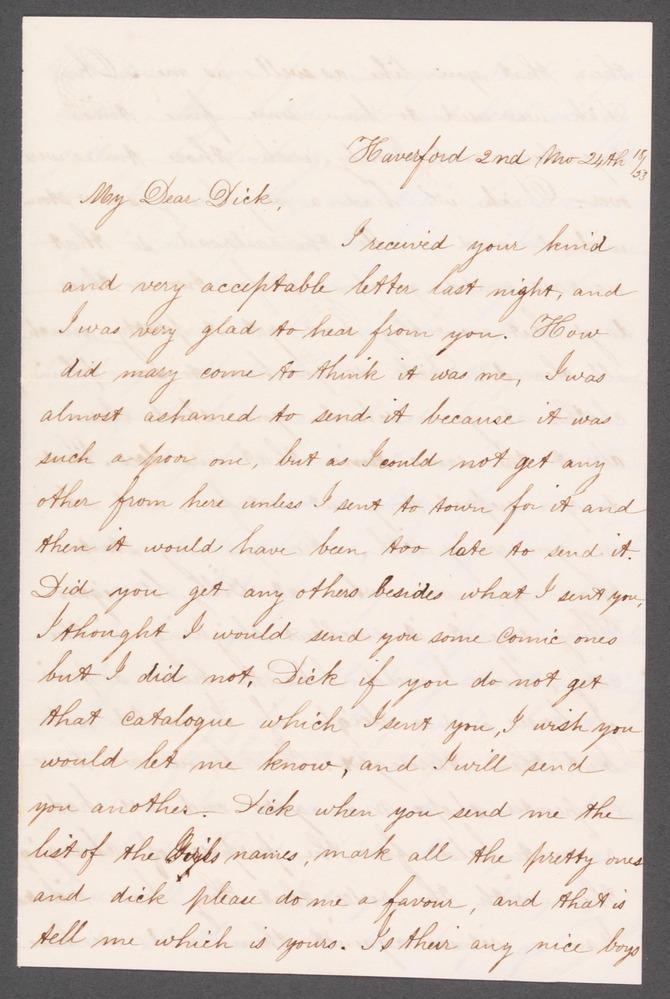 Haverford 2nd Mo 24th 18/53
My Dear Dick,
I received your kind
and very acceptable letter last night, and
I was very glad to hear from you. How
did mary come to think it was me, I was
almost ashamed to send it because it was
such a poor one, but as I could not get any
other from here unless I sent to town for it and
then it would have been too late to send it.
Did you get any others besides what I sent you,
I thought I would send you some Comic ones
but I did not, Dick if you do not get
that catalogue which I sent you, I wish you
would let me know, and I will send
you another. Dick when you send me the
list of the Girls names, mark all the pretty ones
and dick please do me a favour, and that is
tell me which is yours. Is their any nice boys